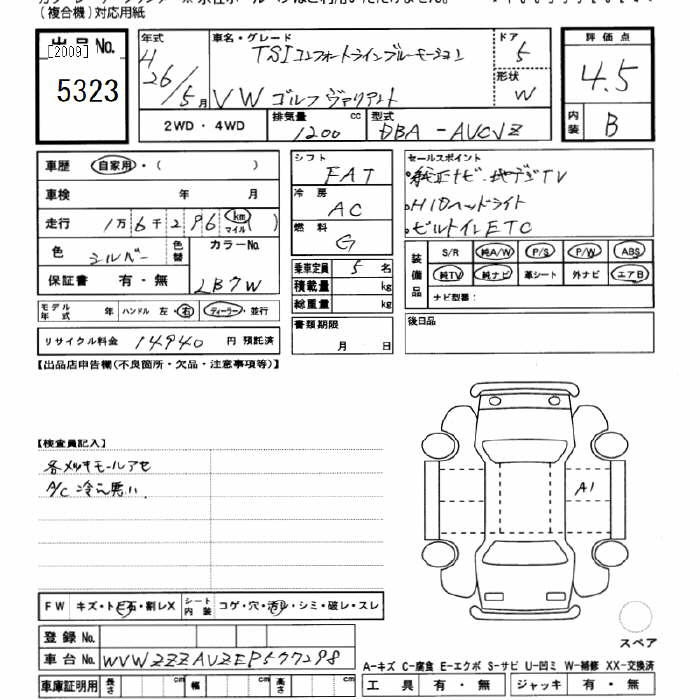 (複合機)対応用紙
出品No.
[2009]
5323
年式
H 26/5月
車名・グレード
TSI コンフォートラインブルーモーション
VW ゴルフヴァリアント
ドア
5
形状
W
評価点
4.5
内装
B
2WD・4WD
排気量 1200 cc
型式 DBA-AUCJZ
車歴 自家用・( )
車検 年 月
走行 1万6千296 km マイル( )
色 シルバー
色替
カラーNo.
LB7W
保証書 有・無
モデル年式 年
ハンドル 左・右
ディーラー・並行
リサイクル料金 14940 円 預託済
シフト
FAT
冷房
AC
燃料
G
乗車定員 5 名
積載量 kg
総重量 kg
書類期限
月 日
セールスポイント
純正ナビ・地デジTV
HIDヘッドライト
ビルトインETC
装備品
S/R 純A/W P/S P/W ABS
純TV 純ナビ 革シート 外ナビ エアB
ナビ型番:
後日品
【出品店申告欄(不良箇所・欠品・注意事項等)】
【検査員記入】
各メッキモールアセ
A/C 冷え悪い
A1
FW キズ・トビ石・割レX
シート内装 コゲ・穴・汚レ・シミ・破レ・スレ
登録No.
車台No. WVWZZZAUZEP577298
車庫証明用 長さ cm 幅 cm 高さ cm
スペア
A-キズ C-腐食 E-エクボ S-サビ U-凹ミ W-補修 XX-交換済
工具 有・無 ジャッキ 有・無